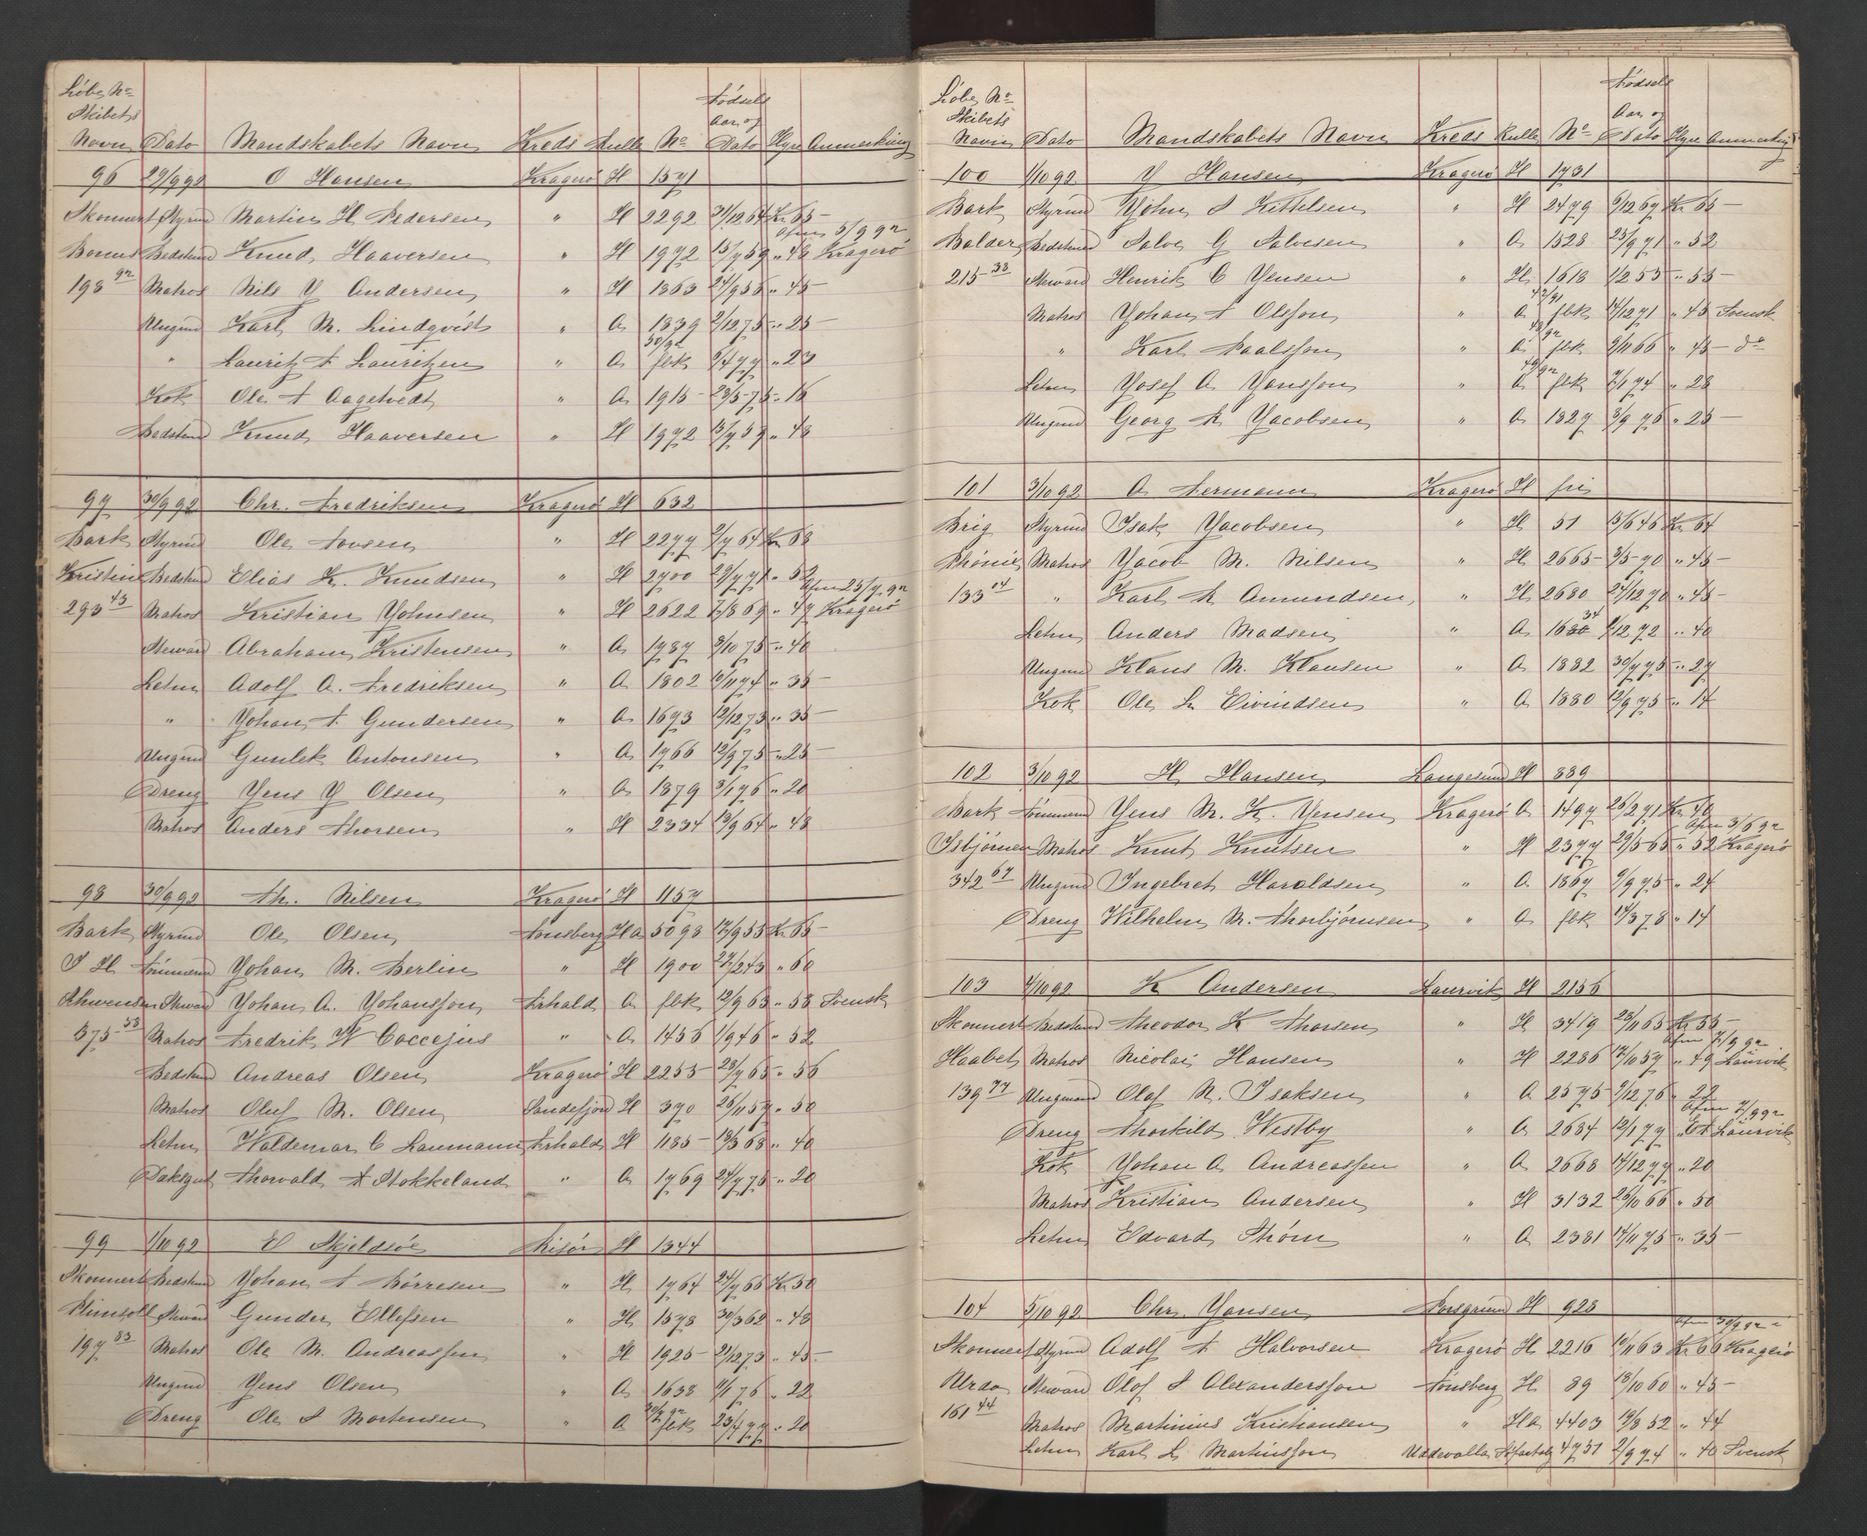 Løbe No
Skibets Fødsels
Navn Dato Mandskabets Navn Kreds Rulle No Aar og Dato Hyre Anmerkning
96 29/9 92 O Hansen Kragerø H 1571
Skonnert Styrmd Martin H Pedersen " H 2292 31/12 64 Kr 65 –
Afm 5/9 92
Bedstmd Knud Haaversen " H 1972 13/7 59 " 48 Kragerø
198 92 Matros Nils J Andersen " H 1863 24/9 56 " 45 –
Ungmd Karl M. Lindqvist " A 1839 2/12 75 – " 25 –
30/92
" Lauritz A Lauritzen " A fbk 9/4 77 " 23
Kok Ole A Aagetvedt " A 1915 – 23/5 – 75 – " 16
Bedstmd Knud Haaversen " H 1972 13/7 59 " 48
97 30/9 92 Chr. Fredriksen Kragerø H 632
Bark Styrmd Ole Tovsen " H 2277 2/7 64 Kr 68
Kristine Bedstmd Elias K. Knudsen " H 2700 29/7 71 " 52
Afm 25/7 92
293 43 Matros Kristian Johnsen " H 2622 7/8 69 " 49 Kragerø
Steward Abraham Kristensen " A 1787 3/10 75 – " 40
Letm Adolf A. Fredriksen " A 1802 6/11 74 " 35 –
" Johan F. Gundersen " A 1693 12/12 73 " 35 –
Ungmd Gunlek Antonsen " A 1766 12/9 75 – " 25 –
Dreng Jens J Olsen " A 1879 3/1 76 " 20
Matros Anders Thorsen " H 2334 13/9 64 " 48
98 30/9 92 Th. Nilsen Kragerø H 1157
Bark Styrmd Ole Olsen Tønsberg Ha 5098 17/9 53 Kr 65 –
J H Tømmermd Johan M. Berlin " H 1900 27/2 43 " 60
Schwensen Steward Johan A. Johansson Arhald A fbk 12/9 63 " 58 Svensk
375 – 53 Matros Fredrik W Coccejus " A 1455 1/9 46 " 52
Bedstmd Andreas Olsen Kragerø H 2255 – 23/7 65 – " 56
Matros Oluf M. Olsen Sandefjord H 370 26/11 57 " 50
Letm Waldemar C Laumann Arhald H 1185 – 13/3 68 " 40
Dæksgut Thorvald A Stokkeland " A 1769 24/7 75 – " 20
99 1/10 92 E Skjeldsøe Risør H 1344
Skonnert Bedstmd Johan A Børresen " H 1764 24/7 66 Kr 50
Plimsoll Steward Gunder Ellefsen " H 1578 30/3 62 " 48
197 83 Matros Ole M. Andreassen " H 1925 – 21/12 73 " 45 –
Ungmd Jens Olsen " A 1638 11/1 76 " 22
30/92
Dreng Ole J Mortensen " A fbk 23/4 77 " 20
Løbe No
Skibets Fødsels
Navn Dato Mandskabets Navn Kreds Rulle No Aar og Dato Hyre Anmerkning
100 1/10 92 J Hansen Kragerø H 1731
Bark Styrmd John S Kittelsen " H 2479 6/12 67 Kr 65 –
Balder Bedstmd Salve G Salvesen " A 1528 25/9 71 " 52
215 – 38 Steward Henrik C Jensen " H 1618 1/2 53 " 55 –
42/91
Matros Johan A Olsson " A fbk 17/12 71 " 45 Svensk
48/92
" Karl Paalsson " A fbk 9/11 66 " 45 – do
49/92
Letm Josef A Jonsson " A fbk 7/1 74 " 28
Ungmd Georg A Jacobsen " A 1827 3/9 76 " 25 –
101 3/10 92 A Fermann Kragerø H fri
Brig Styrmd Isak Jacobsen " H 51 13/6 46 Kr 64
Phønix Matros Jacob M. Nilsen " H 2665 – 3/5 – 70 " 45 –
133 04 " Karl A Amundsen " H 2680 27/12 70 " 45 –
34
Letm Anders Madsen " A 1630 6/12 72 " 40
Ungmd Klaus M. Klausen " A 1882 30/7 75 – " 27
Kok Ole L Eivindsen " A 1880 12/9 75 – " 14
102 3/10 92 H Hansen Langesund H 889
Bark Tømmermd Jens M. K. Jensen Kragerø A 1497 26/2 71 Kr 40
Afm 3/6 92
Isbjørnen Matros Knut Knutsen " H 2377 29/5 65 " 52 Kragerø
342 67 Ungmd Ingebret Haraldsen " A 1867 9/9 75 – " 24
Dreng Wilhelm M. Thorbjørnsen " A fbk 14/3 78 " 14
103 4/10 92 K Andersen Laurvik H 2156
Skonnert Bedstmd Theodor K Thorsen " H 3419 23/11 65 Kr 55 –
Afm 7/9 92
Haabet Matros Nicolai Hansen " H 2286 17/10 57 " 49 Laurvik
139 77 Ungmand Olaf N. Isaksen " A 2575 9/12 76 " 22
Afm 7/9 92
Dreng Thorkild Westby " A 2684 12/1 77 " Laurvik
Kok Johan A Andreassen " A 2668 14/12 77 " 20
Matros Kristian Andersen " H 3132 25/10 66 " 50
Letm Edvard Thom " A 2381 14/11 75 – " 35 –
104 5/10 92 Chr Jansen Porsgrund H 928
Afm 30/9 92
Skonnert Styrmd Adolf A Halvorsen Kragerø H 2216 10/11 63 Kr 66 Kragerø
Urda Steward Olof S Alexandersson Tønsberg H 89 13/10 60 " 45 –
161 44 Matros Martinius Kristiansen " Ha 4403 19/8 52 " 44
Letm Karl L Martinsson Uddevalla 4731 2/9 74 " 40 Svensk